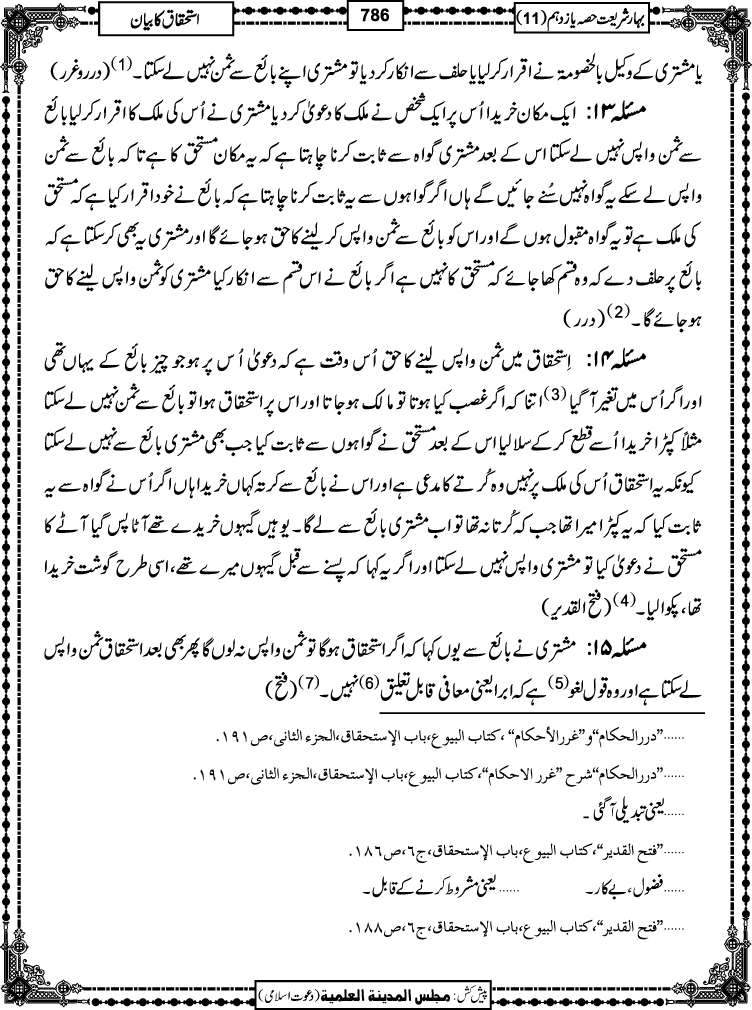 بہارشریعت حصہ یازدہم (11)
786
استحقاق کا بیان
یا مشتری کے وکیل بالخصومۃ نے اقرار کرلیا یا حلف سے انکار کردیا تو مشتری اپنے بائع سے ثمن نہیں لے سکتا۔(1) (درر وغرر)
مسئلہ ۱۳: ایک مکان خریدا اُس پر ایک شخص نے ملک کا دعویٰ کردیا مشتری نے اُس کی ملک کا اقرار کرلیا بائع
سے ثمن واپس نہیں لے سکتا اس کے بعد مشتری گواہ سے ثابت کرنا چاہتا ہے کہ یہ مکان مستحق کا ہے تاکہ بائع سے ثمن
واپس لے سکے یہ گواہ نہیں سُنے جائیں گے ہاں اگر گواہوں سے یہ ثابت کرنا چاہتا ہے کہ بائع نے خود اقرار کیا ہے کہ مستحق
کی ملک ہے تو یہ گواہ مقبول ہوں گے اور اس کو بائع سے ثمن واپس کرلینے کا حق ہوجائے گا اور مشتری یہ بھی کرسکتا ہے کہ
بائع پر حلف دے کہ وہ قسم کھا جائے کہ مستحق کا نہیں ہے اگر بائع نے اس قسم سے انکار کیا مشتری کو ثمن واپس لینے کا حق
ہوجائے گا۔(2) (درر)
مسئلہ ۱۴: اِستحقاق میں ثمن واپس لینے کا حق اُس وقت ہے کہ دعویٰ اُس پر ہو جو چیز بائع کے یہاں تھی
اور اگر اُس میں تغیر آگیا(3) اتنا کہ اگر غصب کیا ہوتا تو مالک ہوجاتا اور اس پر استحقاق ہوا تو بائع سے ثمن نہیں لے سکتا
مثلاً کپڑا خریدا اُسے قطع کرکے سلالیا اس کے بعد مستحق نے گواہوں سے ثابت کیا جب بھی مشتری بائع سے نہیں لے سکتا
کیونکہ یہ استحقاق اُس کی ملک پر نہیں وہ کُرتے کا مدعی ہے اور اس نے بائع سے کرتہ کہاں خریدا ہاں اگر اُس نے گواہ سے یہ
ثابت کیا کہ یہ کپڑا میرا تھا جب کہ کُرتا نہ تھا تو اب مشتری بائع سے لے گا۔ یوہیں گیہوں خریدے تھے آٹا پس گیا آٹے کا
مستحق نے دعویٰ کیا تو مشتری واپس نہیں لے سکتا اور اگر یہ کہا کہ پسنے سے قبل گیہوں میرے تھے، اسی طرح گوشت خریدا
تھا، پکوالیا۔(4) (فتح القدیر)
مسئلہ ۱۵: مشتری نے بائع سے یوں کہا کہ اگر استحقاق ہوگا تو ثمن واپس نہ لوں گا پھر بھی بعد استحقاق ثمن واپس
لے سکتا ہے اور وہ قول لغو(5) ہے کہ ابرا یعنی معافی قابل تعلیق(6) نہیں۔(7) (فتح)
......”دررالحکام“و”غررالأحکام“،کتاب البیوع،باب الإستحقاق،الجزء الثانی،ص۱۹۱.
......”دررالحکام“شرح ”غرر الاحکام“،کتاب البیوع،باب الإستحقاق،الجزء الثانی،ص۱۹۱.
......یعنی تبدیلی آگئی۔
......”فتح القدیر“،کتاب البیوع،باب الإستحقاق،ج۶،ص۱۸۶.
......فضول، بے کار۔ ......یعنی مشروط کرنے کے قابل۔
......”فتح القدیر“،کتاب البیوع،باب الإستحقاق،ج۶،ص۱۸۸.
پیش کش: مجلس المدینۃ العلمیۃ (دعوت اسلامی)